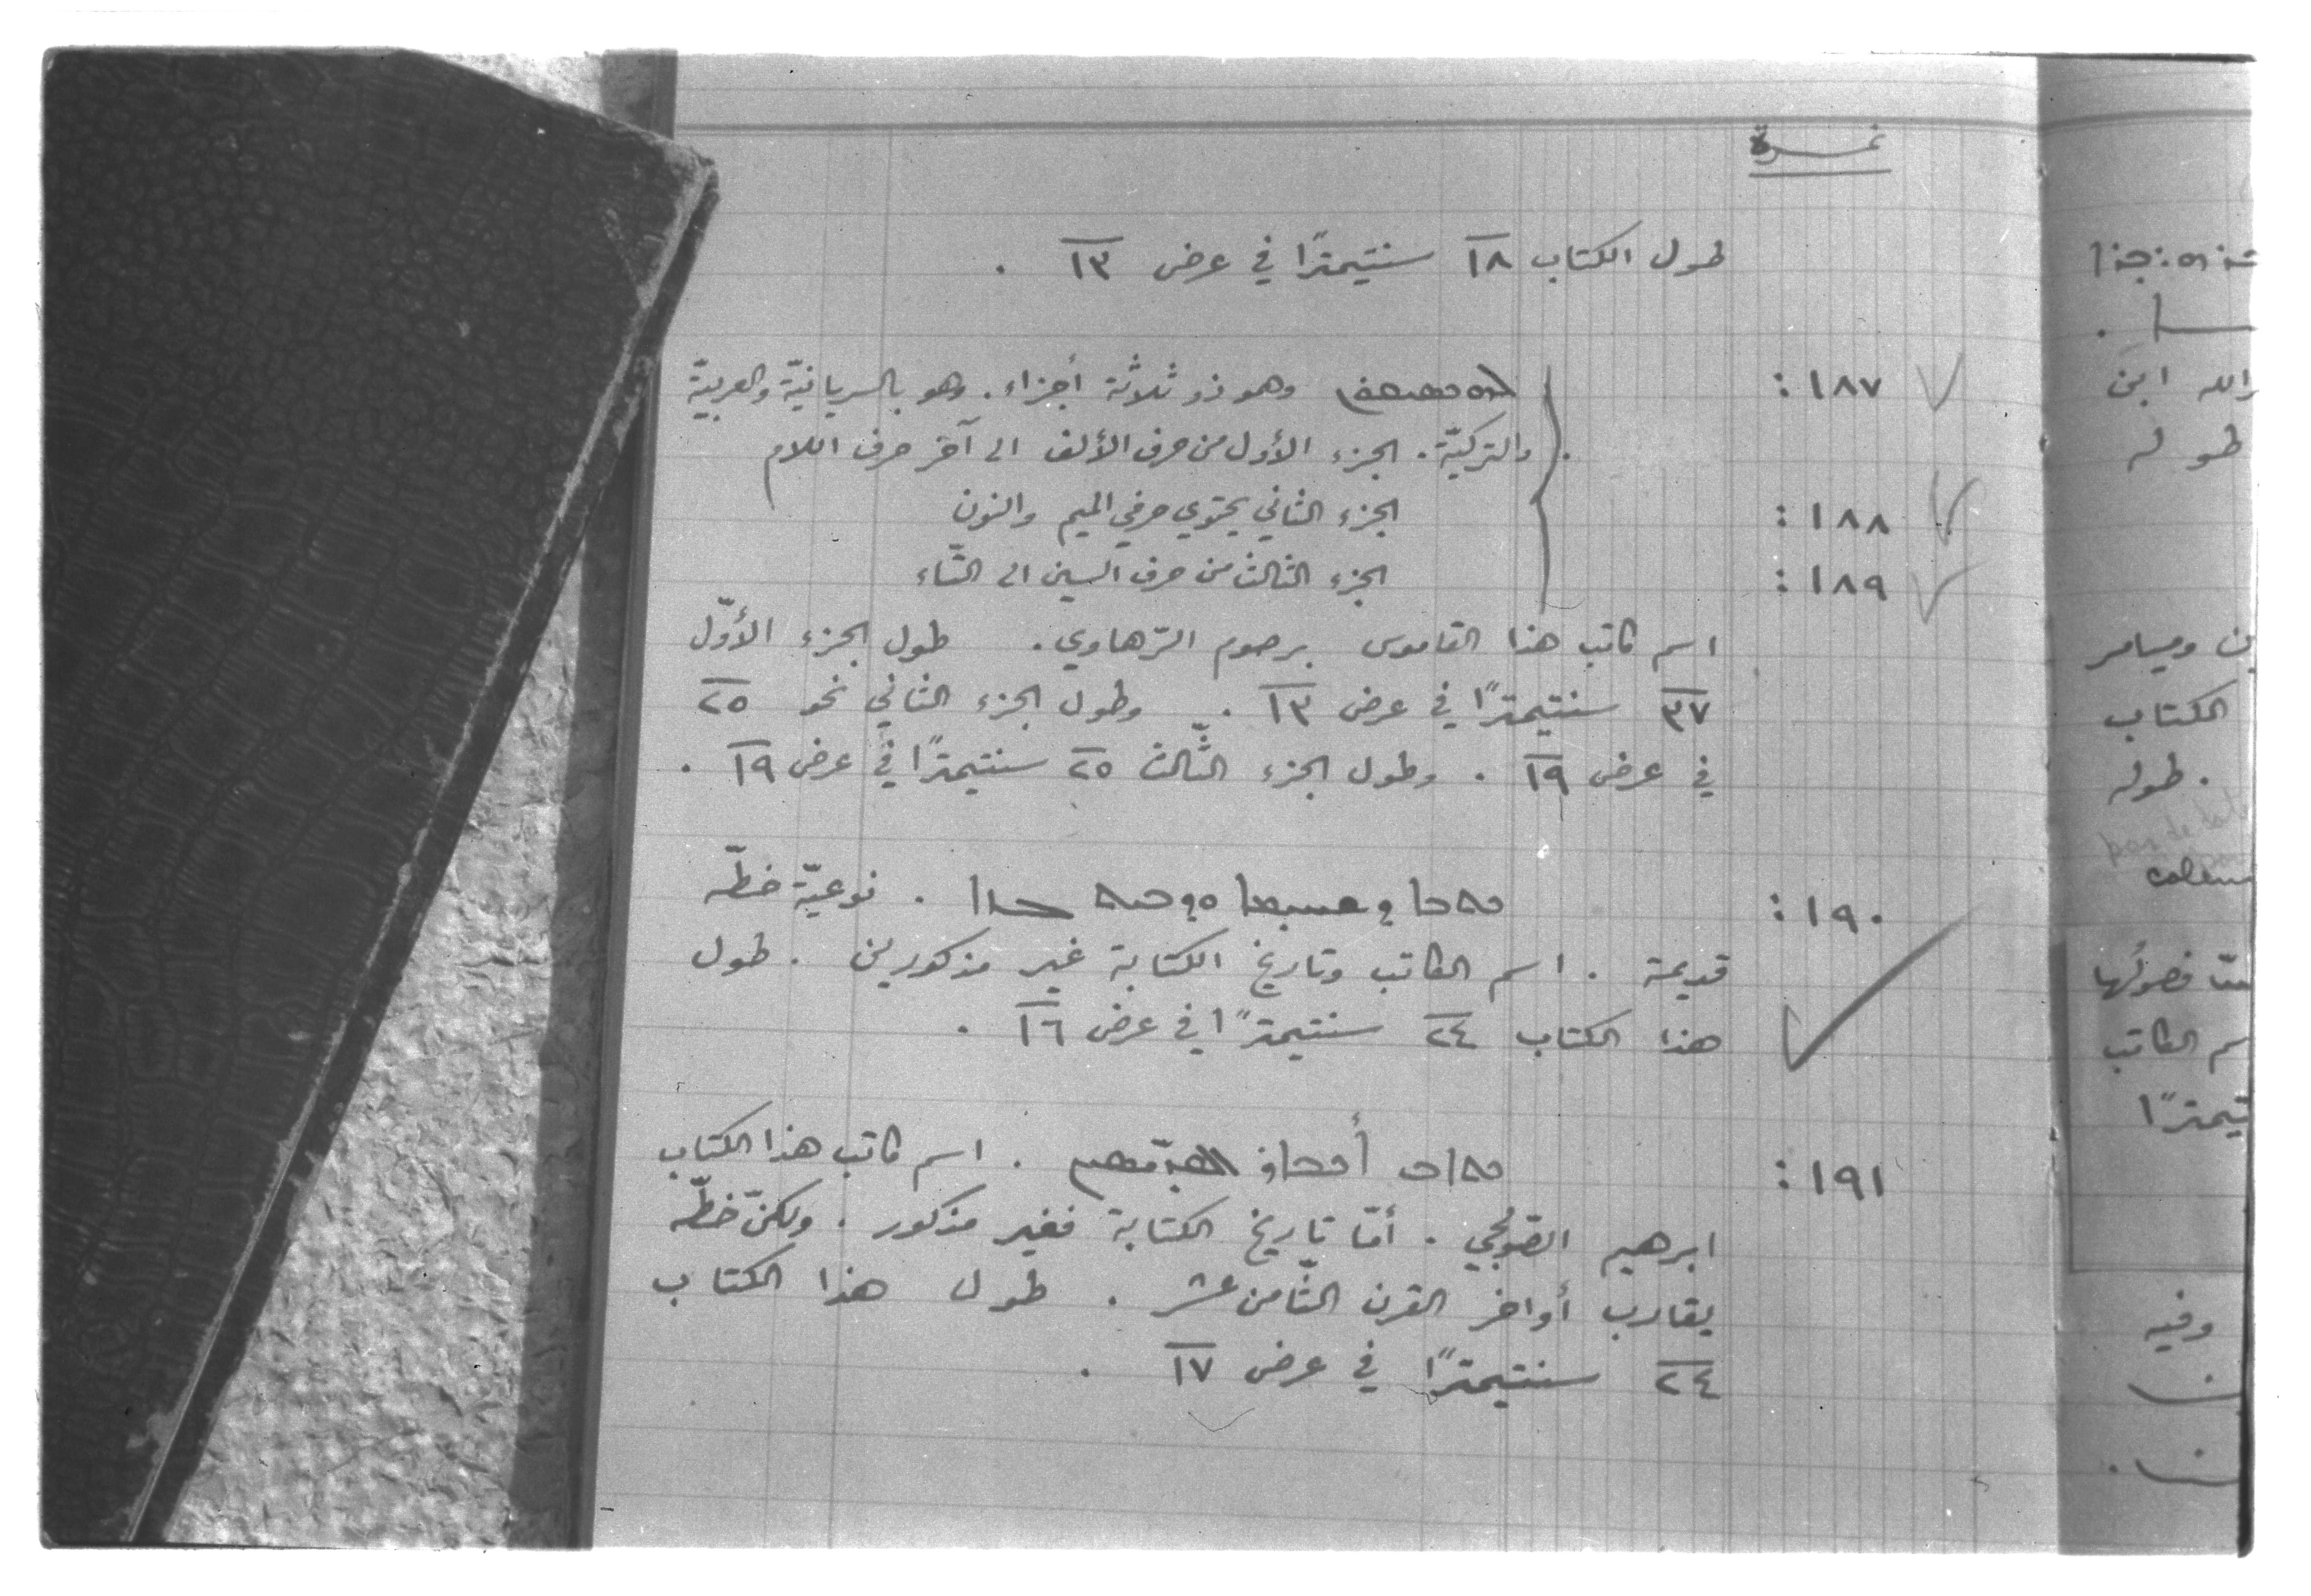 نمرة
طول الكتاب ١٨ سنتيمترًا في عرض ١٣ .
١٨٧ : ܠܗܟܣܝܩܘܢ وهو ذو ثلاثة أجزاء . وهو بالسريانيّة والعربيّة
والتركيّة . الجزء الأول من حرف الألف الى آخر حرف اللام
١٨٨ : الجزء الثاني يحتوي حرفي الميم والنون
١٨٩ : الجزء الثالث من حرف السين الى التّاء
اسم كاتب هذا القاموس برصوم الرّهاوي . طول الجزء الأوّل
٣٧ سنتيمترًا في عرض ١٣ . وطول الجزء الثاني نحو ٢٥
في عرض ١٩ . وطول الجزء الثّالث ٢٥ سنتيمترًا في عرض ١٩ .
١٩٠ : ܟܬܒܐ . نوعيّة خطّه
قديمة . اسم الكاتب وتاريخ الكتابة غير مذكورين . طول
هذا الكتاب ٢٤ سنتيمترًا في عرض ١٦ .
١٩١ : . اسم كاتب هذا الكتاب
ابرهيم . أمّا تاريخ الكتابة فغير مذكور . ولكنّ خطّه
يقارب أواخر القرن الثّامن عشر . طول هذا الكتاب
٢٤ سنتيمترًا في عرض ١٧ .
الله ابن
طوله
ين وميامر
الكتاب
. طوله
فصولها
سم الكاتب
تيمترًا
وفيه